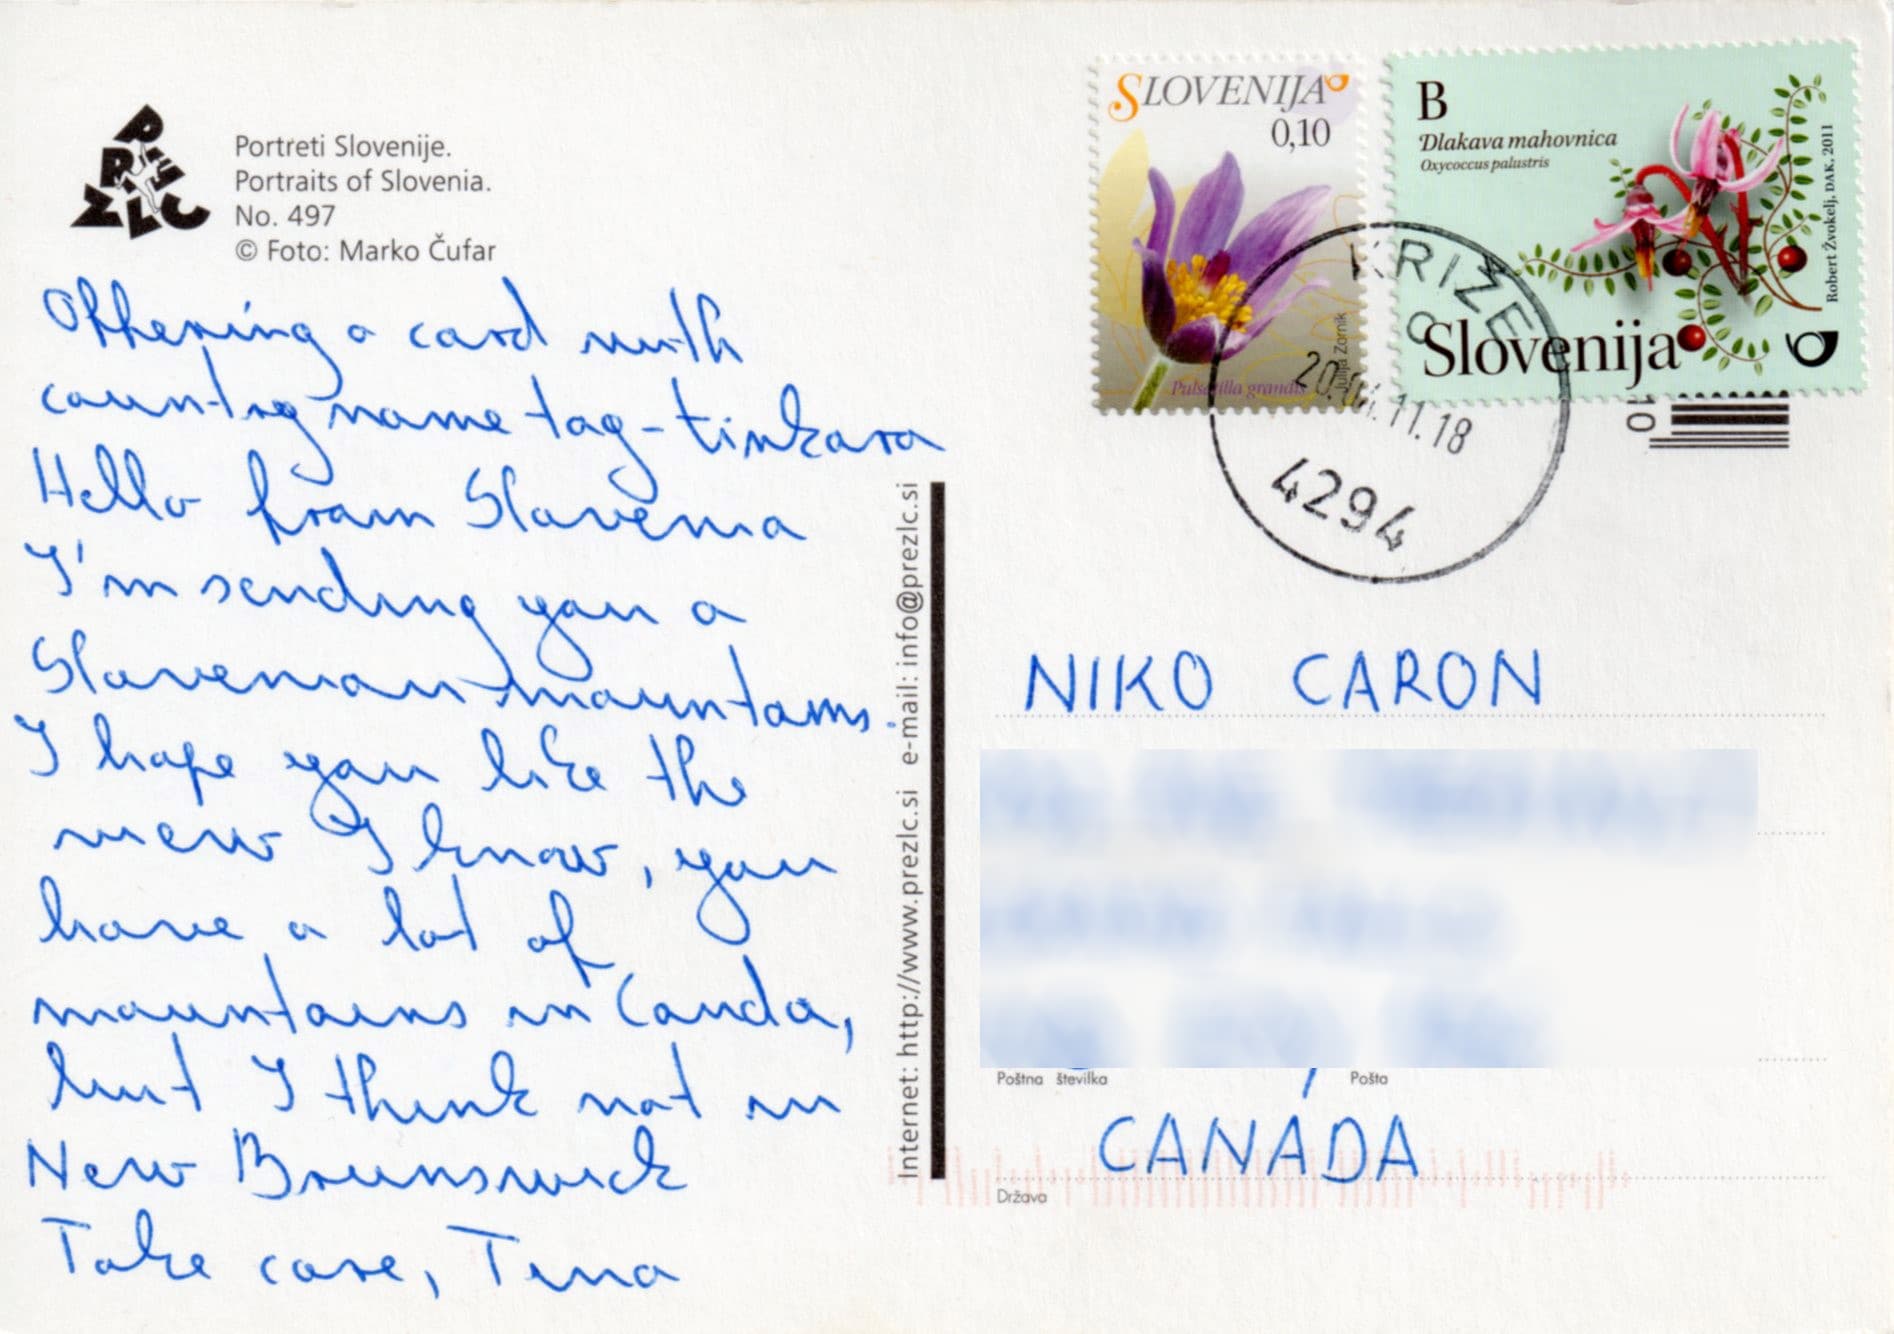 PREZLC
Portreti Slovenije.
Portraits of Slovenia.
No. 497
© Foto: Marko Čufar
Offering a card with
country name tag - tinkara
Hello from Slovenia
I'm sending you a
Slovenian mountains.
I hope you like the
view I know, you
have a lot of
mountains in Canda,
but I think not in
New Brunswick
Take care, Tina
Internet: http://www.prezlc.si e-mail: info@prezlc.si
SLOVENIJA
0,10
Julija Zornik
Pulsatilla grandis
B
Dlakava mahovnica
Oxycoccus palustris
Robert Žvokelj, DAK, 2011
Slovenija
KRIŽE
20.04.11.18
4294
10
NIKO CARON
Poštna številka Pošta
CANADA
Država